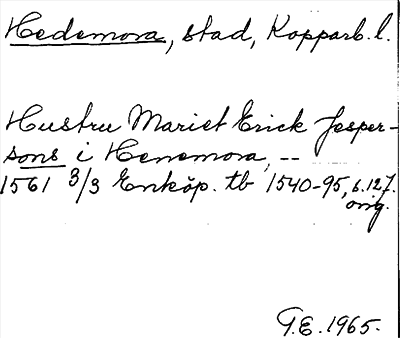 Hedemora, stad, Kopparb. l.
Hustru Mariet Erick Jesper-
sons i Henemora, --
1561 3/3 Enköp. tb 1540-95, s. 127.
orig.
G.E. 1965.